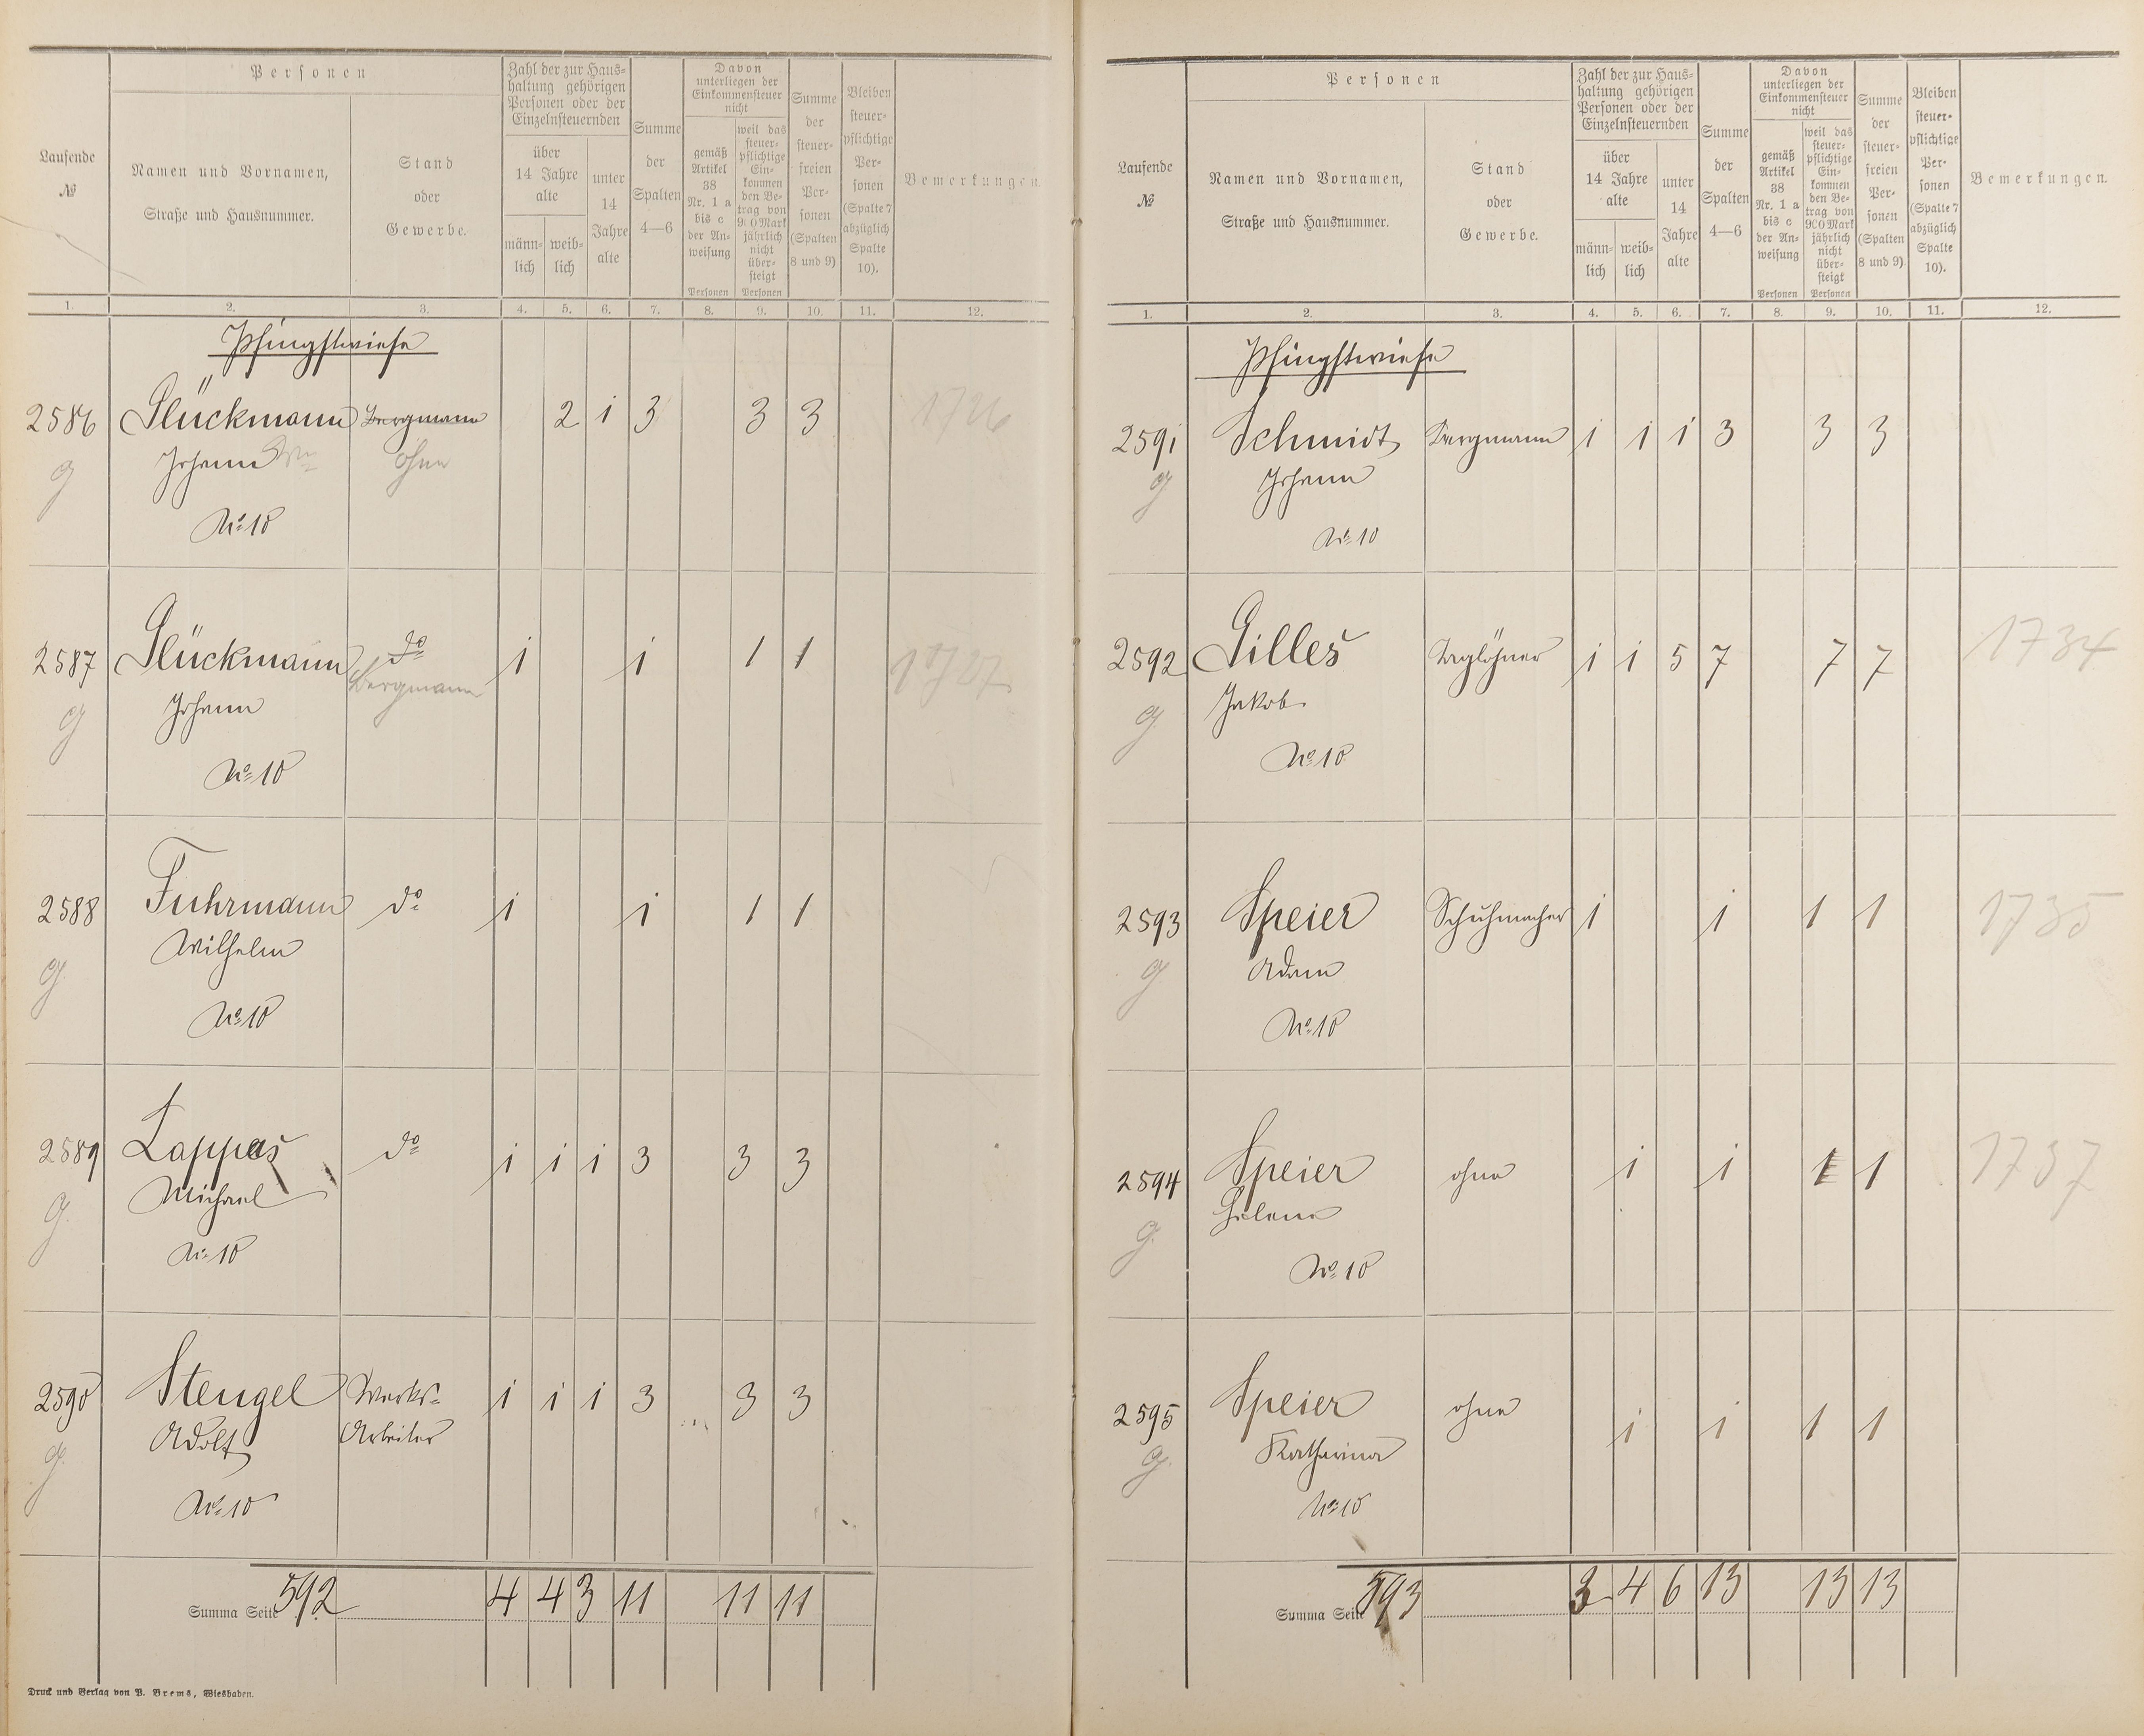 Personen
Laufende
№
Namen und Vornamen,
Straße und Hausnummer.
Stand
oder
Gewerbe.
Zahl der zur Haus=
haltung gehörigen
Personen oder der
Einzelnsteuernden
über
14 Jahre
alte
männ=
lich
weib=
lich
unter
14
Jahre
alte
Summe
der
Spalten
4—6
Davon
unterliegen der
Einkommensteuer
nicht
gemäß
Artikel
38
Nr. 1 a
bis c
der An=
weisung
Personen
weil das
steuer=
pflichtige
Ein=
kommen
den Be=
trag von
900 Mark
jährlich
nicht
über=
steigt
Personen
Summe
der
steuer=
freien
Per=
sonen
(Spalten
8 und 9)
Bleiben
steuer=
pflichtige
Per=
sonen
(Spalte 7
abzüglich
Spalte
10).
Bemerkungen.
1. 2. 3. 4. 5. 6. 7. 8. 9. 10. 11. 12.
Pfingstwiese
2586 Glückmann Bergmann 2 1 3 3 3 1726
g Johann Ww ohne
№ 10
2587 Glückmann do 1 1 1 1 1727
Bergmann
g Johann
№ 10
2588 Fuhrmann do 1 1 1 1
g Wilhelm
№ 10
2589 Lappas do 1 1 1 3 3 3
g Michael
№ 10
2590 Stengel Werks= 1 1 1 3 3 3
g Adolf Arbeiter
№ 10
Summa Seite 592 4 4 3 11 11 11
Druck und Verlag von P. Brems, Wiesbaden.
Personen
Laufende
№
Namen und Vornamen,
Straße und Hausnummer.
Stand
oder
Gewerbe.
Zahl der zur Haus=
haltung gehörigen
Personen oder der
Einzelnsteuernden
über
14 Jahre
alte
männ=
lich
weib=
lich
unter
14
Jahre
alte
Summe
der
Spalten
4—6
Davon
unterliegen der
Einkommensteuer
nicht
gemäß
Artikel
38
Nr. 1 a
bis c
der An=
weisung
Personen
weil das
steuer=
pflichtige
Ein=
kommen
den Be=
trag von
900 Mark
jährlich
nicht
über=
steigt
Personen
Summe
der
steuer=
freien
Per=
sonen
(Spalten
8 und 9)
Bleiben
steuer=
pflichtige
Per=
sonen
(Spalte 7
abzüglich
Spalte
10).
Bemerkungen.
1. 2. 3. 4. 5. 6. 7. 8. 9. 10. 11. 12.
Pfingstwiese
2591 Schmidt Bergmann 1 1 1 3 3 3
g Johann
№ 10
2592 Gilles Taglöhner 1 1 5 7 7 7 1734
g Jakob
№ 10
2593 Speier Schuhmacher 1 1 1 1 1735
g Adam
№ 10
2594 Speier ohne 1 1 1 1 1737
g Helene
№ 10
2595 Speier ohne 1 1 1 1
g Katharina
№ 10
Summa Seite 593 3 4 6 13 13 13